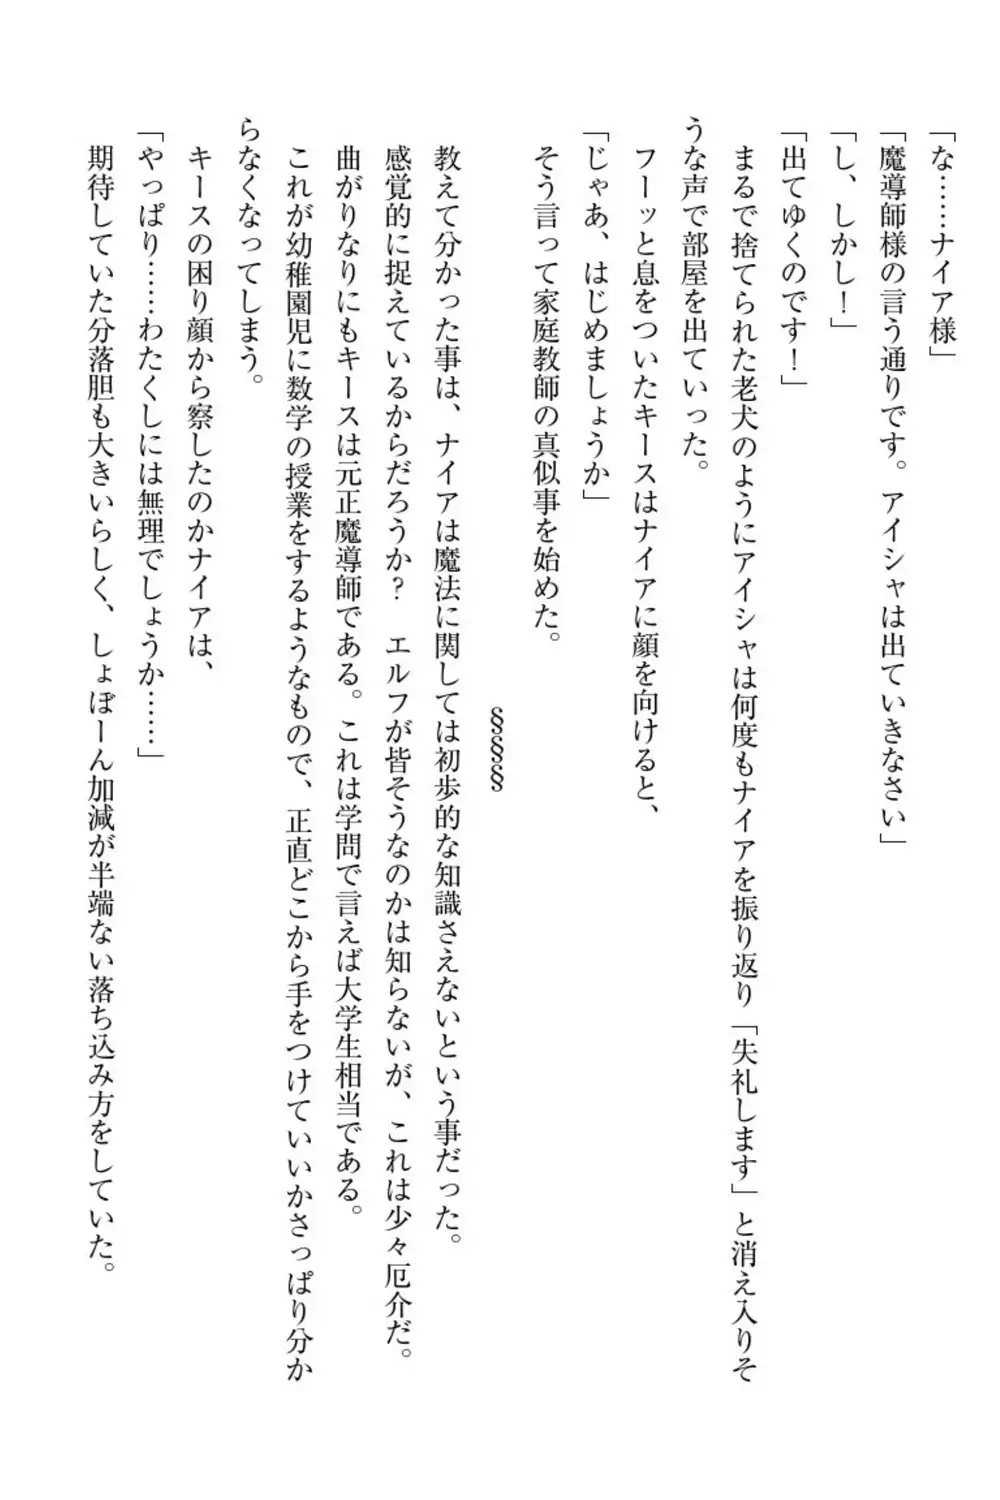 「な……ナイア様」
「魔導師様の言う通りです。アイシャは出ていきなさい」
「し、しかし！」
「出てゆくのです！」
　まるで捨てられた老犬のようにアイシャは何度もナイアを振り返り「失礼します」と消え入りそ
うな声で部屋を出ていった。
　フーッと息をついたキースはナイアに顔を向けると、
「じゃあ、はじめましょうか」
　そう言って家庭教師の真似事を始めた。
§§§§
　教えて分かった事は、ナイアは魔法に関しては初歩的な知識さえないという事だった。
　感覚的に捉えているからだろうか？　エルフが皆そうなのかは知らないが、これは少々厄介だ。
　曲がりなりにもキースは元正魔導師である。これは学問で言えば大学生相当である。
　これが幼稚園児に数学の授業をするようなもので、正直どこから手をつけていいかさっぱり分か
らなくなってしまう。
　キースの困り顔から察したのかナイアは、
「やっぱり……わたくしには無理でしょうか……」
　期待していた分落胆も大きいらしく、しょぼーん加減が半端ない落ち込み方をしていた。